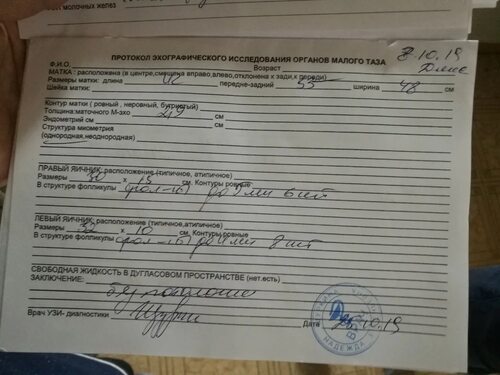 молочных желез
ПРОТОКОЛ ЭХОГРАФИЧЕСКОГО ИССЛЕДОВАНИЯ ОРГАНОВ МАЛОГО ТАЗА
8.10.19
Ф.И.О. Возраст
МАТКА: расположена (в центре,смещена вправо,влево,отклонена к зади,к переди)
Размеры матки: длина передне-задний 33 ширина 48 см
Шейка матки:
Контур матки (ровный, неровный, бугристый)
Толщина:маточного М-эхо см
Эндометрий см
Структура миометрия
(однородная.неоднородная)
ПРАВЫЙ ЯИЧНИК: расположение (типичное, атипичное)
Размеры 30 х 15 см. Контуры ровные
В структуре фолликулы фол-лы до 6 шт
ЛЕВЫЙ ЯИЧНИК: расположение (типичное,атипичное)
Размеры 32 х 10 см. Контуры ровные
В структуре фолликулы фол-лы 8 шт
СВОБОДНАЯ ЖИДКОСТЬ В ДУГЛАСОВОМ ПРОСТРАНСТВЕ (нет.есть)
ЗАКЛЮЧЕНИЕ:
Врач УЗИ- диагностики
Дата 10.19
НАДЕЖДА